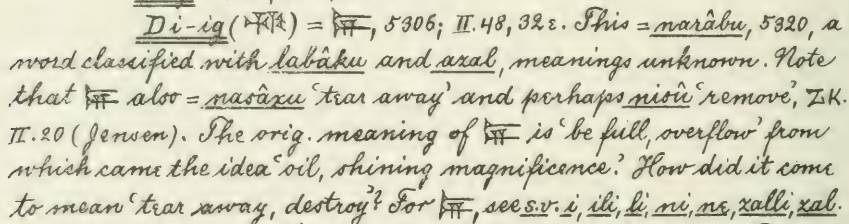 Di-iq (𒅅) = 𒉌, 5306; II. 48, 32ε. This = narâbu, 5320, a
word classified with labâku and azal, meanings unknown. Note
that 𒉌 also = nasâxu ‘tear away’ and perhaps nisû ‘remove’, ZK.
II. 20 (Jensen). The orig. meaning of 𒉌 is ‘be full, overflow’ from
which came the idea ‘oil, shining magnificence.’ How did it come
to mean ‘tear away, destroy’? For 𒉌, see s.v. i, ili, li, ni, ne, zalli, zal.